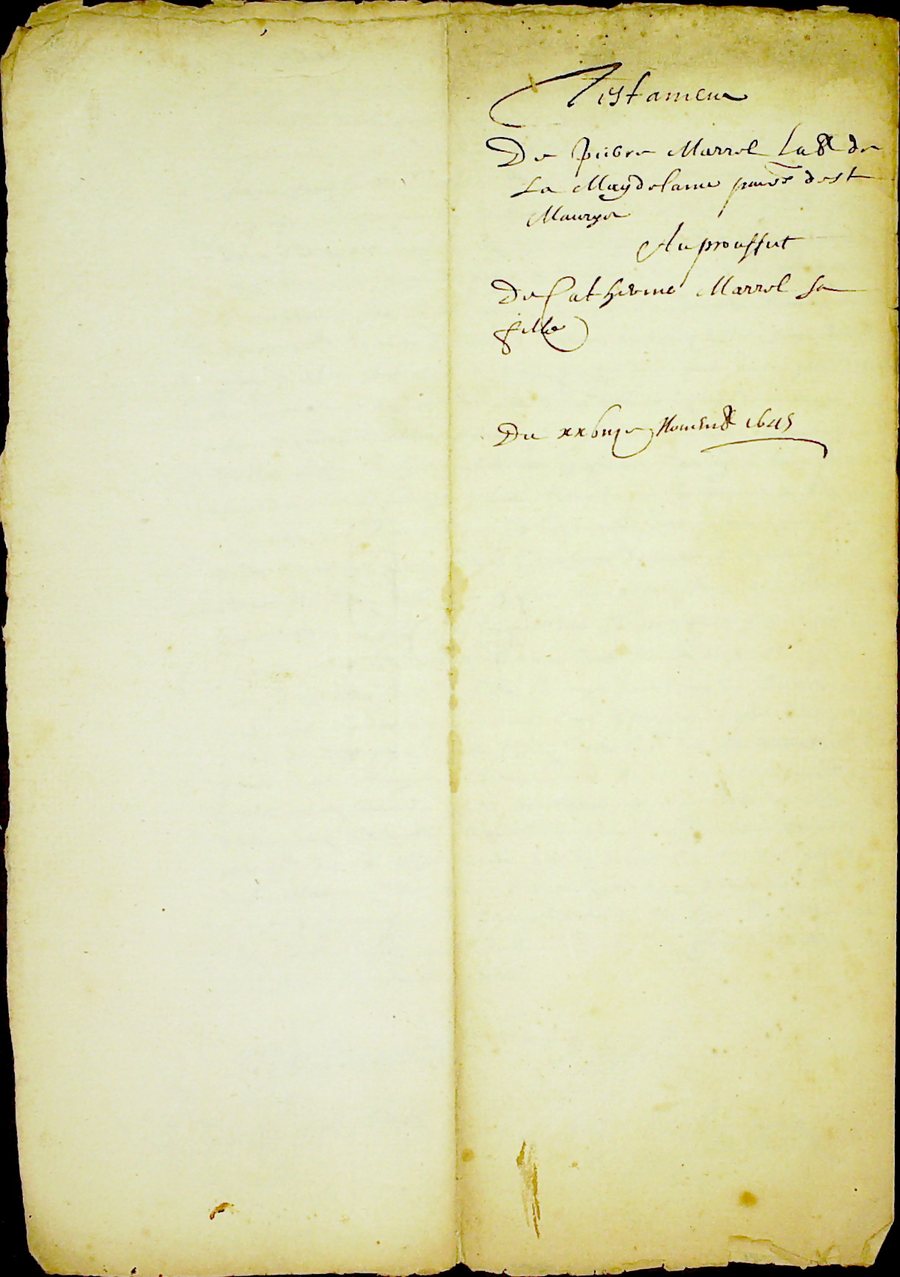 Testament
De pierre Marrel lab de
La Magdelaine par̃ de st
Mauryse
Au prouffit
De Catherine Marrel sa
fille
Du xxbııȷe Novemb 1645